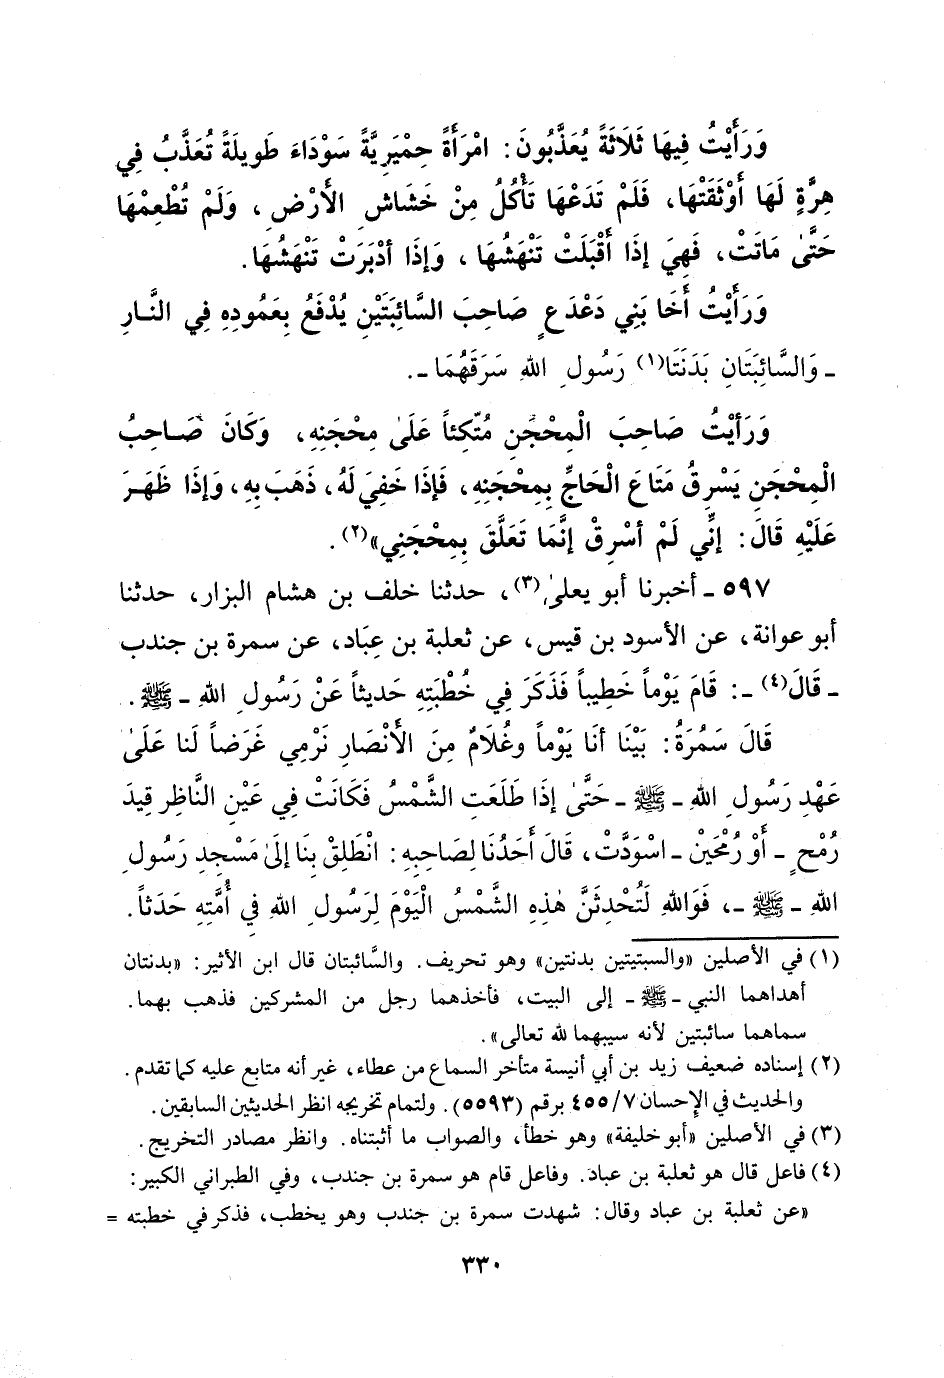 وَرَأَيْتُ فِيهَا ثَلَاثَةً يُعَذَّبُونَ: امْرَأَةً حِمْيَرِيَّةً سَوْدَاءَ طَوِيلَةً تُعَذَّبُ فِي
هِرَّةٍ لَهَا أَوْثَقَتْهَا، فَلَمْ تَدَعْهَا تَأْكُلُ مِنْ خَشَاشِ الأَرْضِ، وَلَمْ تُطْعِمْهَا
حَتَّىٰ مَاتَتْ، فَهِيَ إِذَا أَقْبَلَتْ تَنْهَشُهَا، وَإِذَا أَدْبَرَتْ تَنْهَشُهَا.
وَرَأَيْتُ أَخَا بَنِي دَعْدَعٍ صَاحِبَ السَّائِبَتَيْنِ يُدْفَعُ بِعَمُودِهِ فِي النَّارِ
ـ وَالسَّائِبَتَانِ بَدَنَتَا(١) رَسُولِ اللهِ سَرَقَهُمَا ـ.
وَرَأَيْتُ صَاحِبَ الْمِحْجَنِ مُتَّكِئاً عَلَىٰ مِحْجَنِهِ، وَكَانَ صَاحِبُ
الْمِحْجَنِ يَسْرِقُ مَتَاعَ الْحَاجِّ بِمِحْجَنِهِ، فَإِذَا خَفِيَ لَهُ، ذَهَبَ بِهِ، وَإِذَا ظَهَرَ
عَلَيْهِ قَالَ: إِنِّي لَمْ أَسْرِقْ إِنَّمَا تَعَلَّقَ بِمِحْجَنِي»(٢).
٥٩٧ ـ أخبرنا أبو يعلىٰ(٣)، حدثنا خلف بن هشام البزار، حدثنا
أبو عوانة، عن الأسود بن قيس، عن ثعلبة بن عِبَاد، عن سمرة بن جندب
ـ قَالَ(٤) ـ: قَامَ يَوْماً خَطِيباً فَذَكَرَ فِي خُطْبَتِهِ حَدِيثاً عَنْ رَسُولِ اللهِ ـ ﷺ.
قَالَ سَمُرَةُ: بَيْنَا أَنَا يَوْماً وغُلَامٌ مِنَ الأَنْصَارِ نَرْمِي غَرَضاً لَنا عَلَىٰ
عَهْدِ رَسُولِ اللهِ ـ ﷺ ـ حَتَّىٰ إِذَا طَلَعَتِ الشَّمْسُ فَكَانَتْ فِي عَيْنِ النَّاظِرِ قِيدَ
رُمْحٍ ـ أَوْ رُمْحَيْنِ ـ اسْوَدَّتْ، قَالَ أَحَدُنَا لِصَاحِبِهِ: انْطَلِقْ بِنَا إِلَىٰ مَسْجِدِ رَسُولِ
اللهِ ـ ﷺ ـ، فَوَاللهِ لَتُحْدِثَنَّ هٰذِهِ الشَّمْسُ الْيَوْمَ لِرَسُولِ اللهِ فِي أُمَّتِهِ حَدَثاً.
(١) في الأصلين «والسبتيتين بدنتين» وهو تحريف. والسَّائبتان قال ابن الأثير: «بدنتان
أهداهما النبي ـ ﷺ ـ إلى البيت، فأخذهما رجل من المشركين فذهب بهما.
سماهما سائبتين لأنه سيبهما لله تعالى».
(٢) إسناده ضعيف زيد بن أبي أنيسة متأخر السماع من عطاء، غير أنه متابع عليه كما تقدم.
والحديث في الإحسان ٤٥٥/٧ برقم (٥٥٩٣). ولتمام تخريجه انظر الحديثين السابقين.
(٣) في الأصلين «أبو خليفة» وهو خطأ، والصواب ما أثبتناه. وانظر مصادر التخريج.
(٤) فاعل قال هو ثعلبة بن عباد. وفاعل قام هو سمرة بن جندب، وفي الطبراني الكبير:
«عن ثعلبة بن عباد وقال: شهدت سمرة بن جندب وهو يخطب، فذكر في خطبته =
٣٣٠